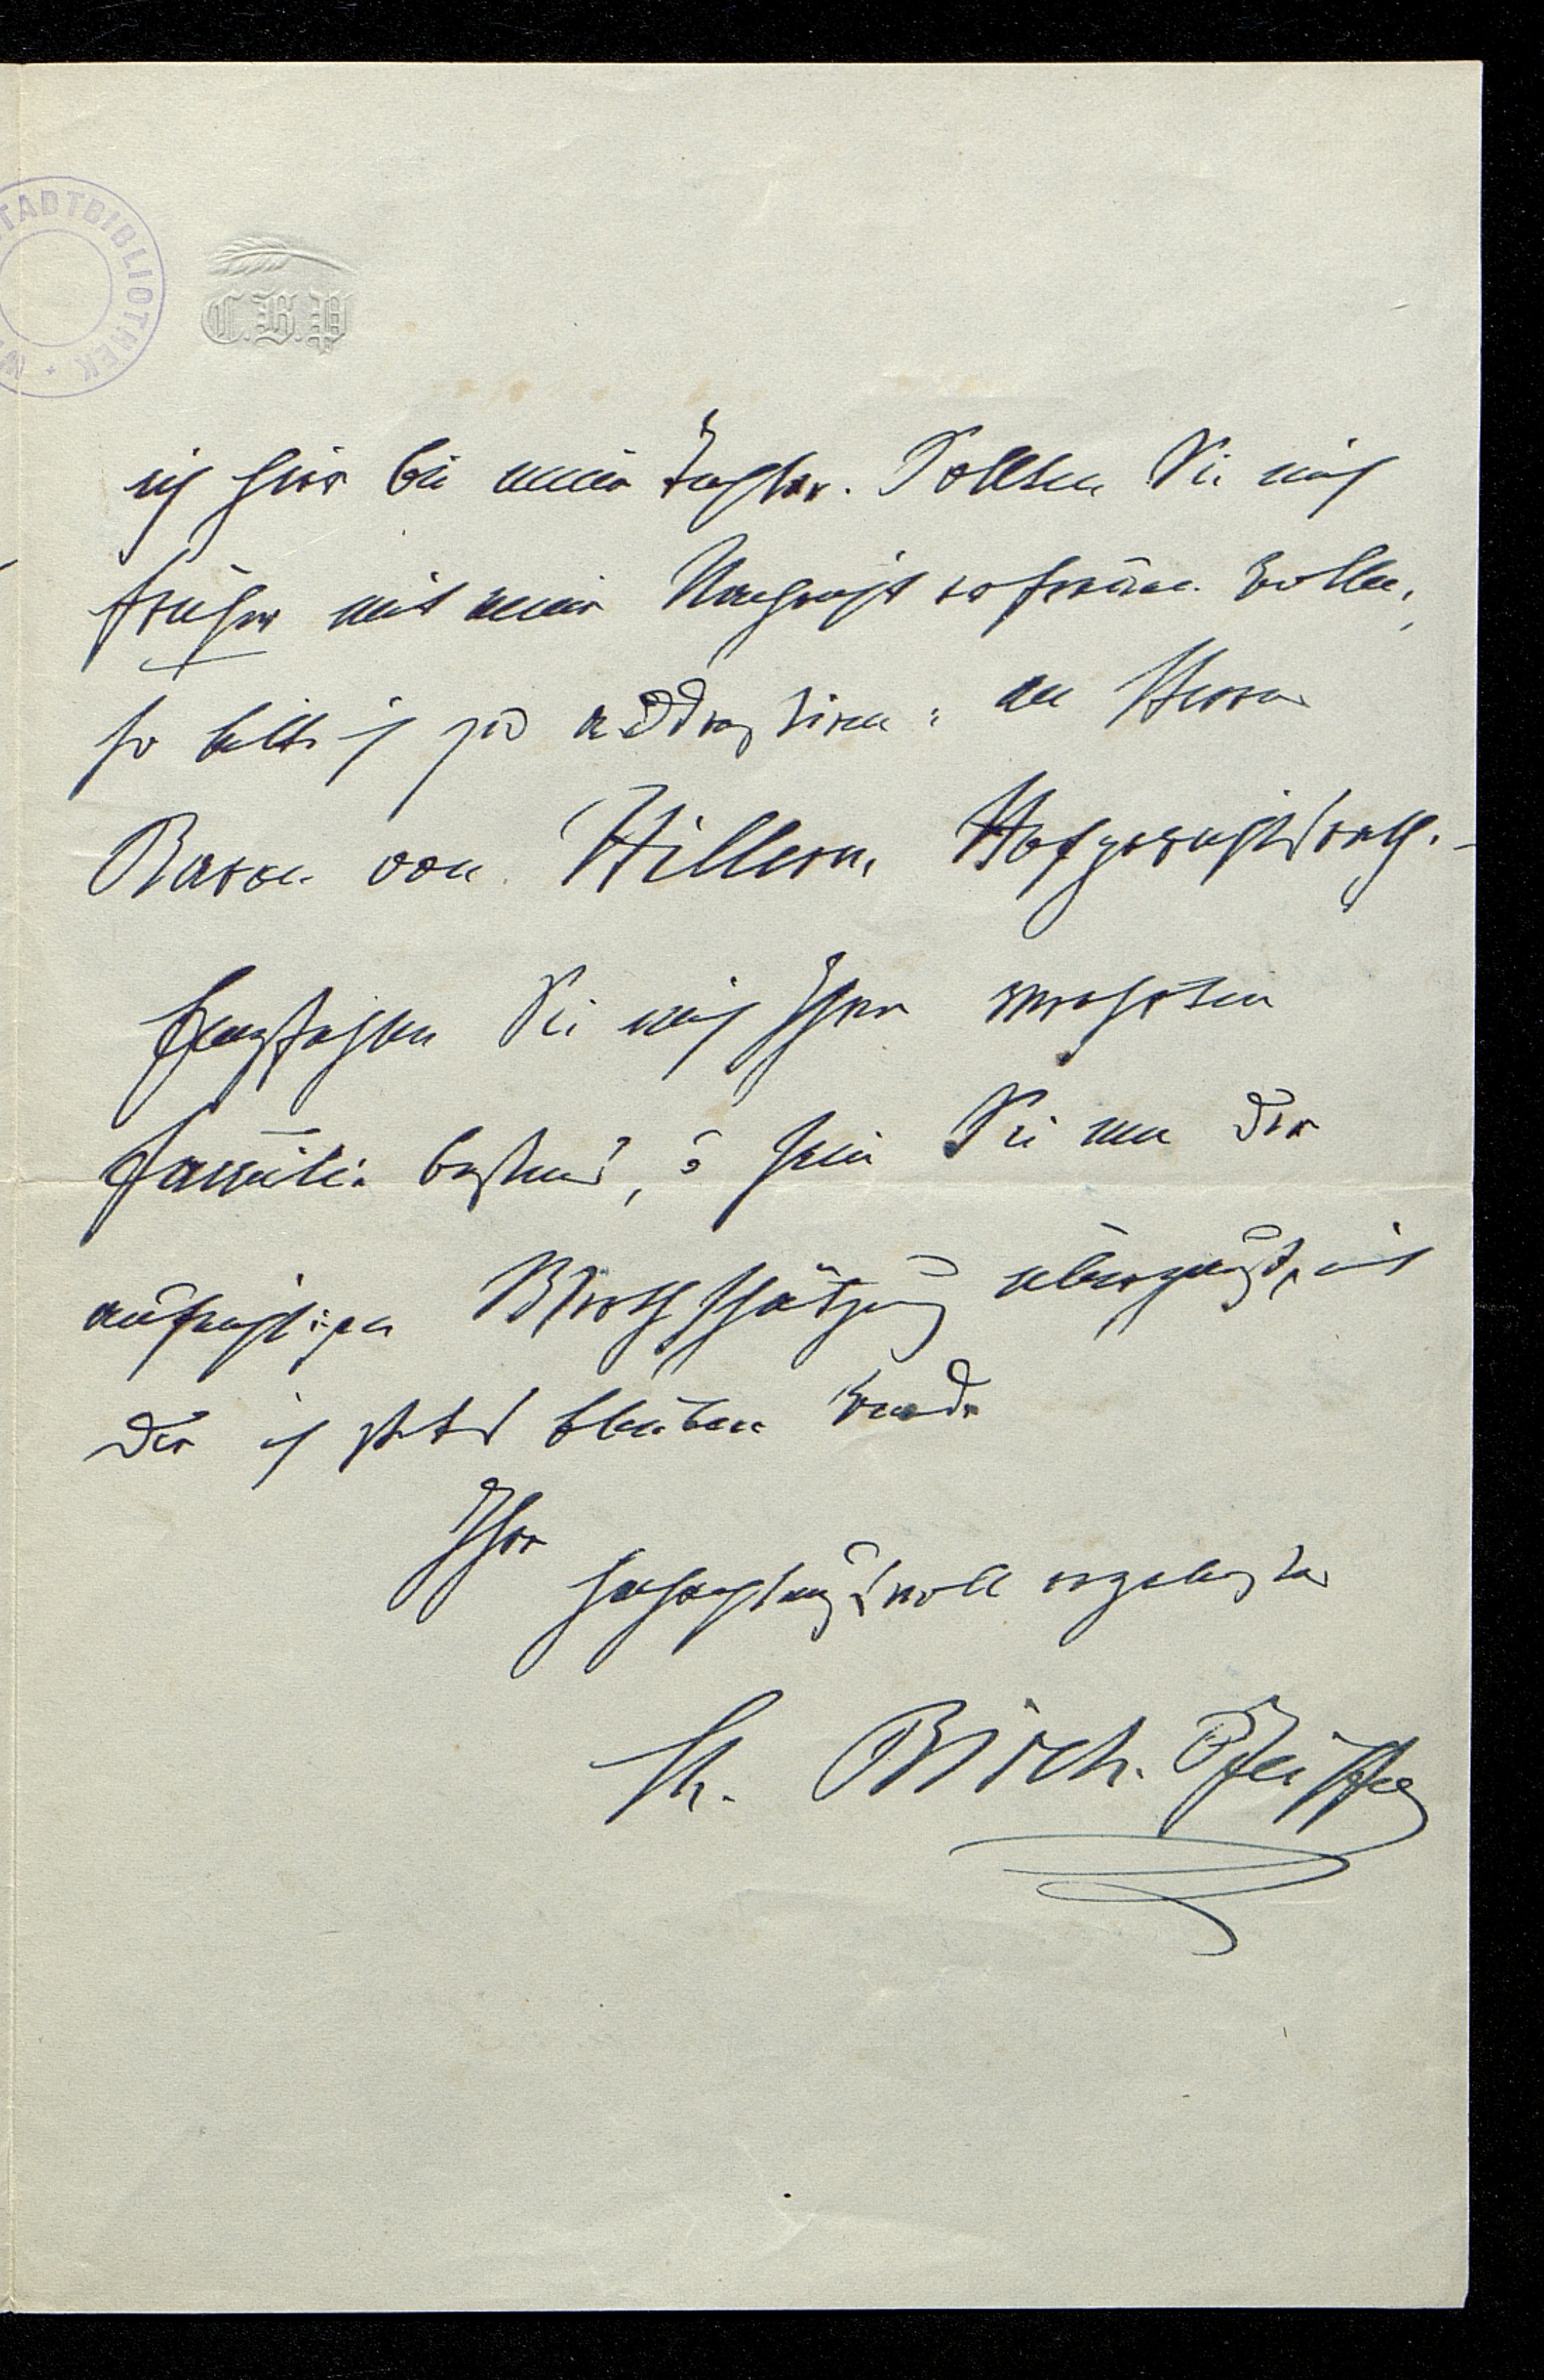 STADTBIBLIOTHEK
C.B.P
ich hier bei meiner Tochter. Sollten Sie mich
früher mit einer Nachricht erfreuen wollen,
so bitte ich zu addressiren: an Herrn
Baron von Hillern, Hofgerichtsrath. –
Empfehlen Sie mich Ihrer verehrten
Familie bestens, u sein Sie von der
aufrichtigen Werthschätzung überzeugt, mit
der ich stets bleiben werde
Ihre
hochachtungsvoll ergebenste
Ch. Birch-Pfeiffer